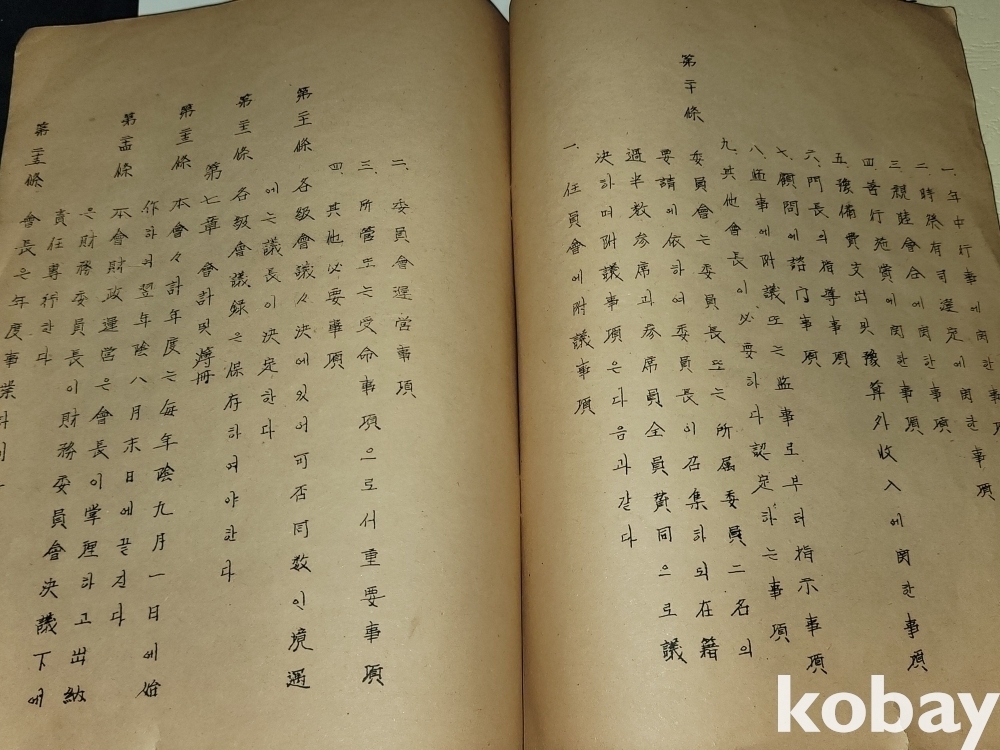 一. 年中行事에 関한 事項
二. 時祭有司選定에 関한 事項
三. 親睦會合에 関한 事項
四. 善行施賞에 関한 事項
五. 豫備費支出 및 豫算外收入에 関한 事項
六. 門長의 指導事項
七. 顧問에 諮问事項
八. 監事에 附議 또는 監事로부터 指示事項
九. 其他 會長이 必要하다 認定하는 事項
第二十條
委員會는 委員長 또는 所属委員 二名의
要請에 依하여 委員長이 召集하되 在籍
過半数 参席과 参席員 全員 賛同으로 議
決하며 附議事項은 다음과 같다
一. 任員會에 附議事項
二. 委員會運営事項
三. 所管 또는 受命事項으로서 重要事項
四. 其他 必要事項
第二十一條 各級會議々決에 있어 可否同数인 境遇
에는 議長이 决定한다
第二十二條 各級會議録은 保存하여야 한다
第七章 會計 및 薄冊
第二十三條 本會々計年度는 每年 陰九月一日에 始
作하되 翌年 陰八月末日에 끝진다
第二十四條 本會財政運営은 會長이 掌理하고 出納
은 財務委員長이 財務委員會決議下에
責任専行한다
第二十五條 會長은 年度事業